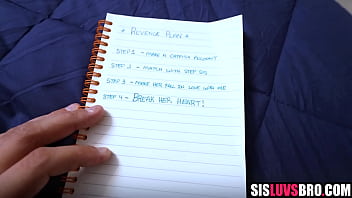 * REVENGE PLAN *
STEP 1 - MAKE A CATFISH ACCOUNT
STEP 2 - MATCH WITH STEP SIS
STEP 3 - MAKE HER FALL IN LOVE WITH ME
STEP 4 - BREAK HER HEART!
SISLUVSBRO.COM